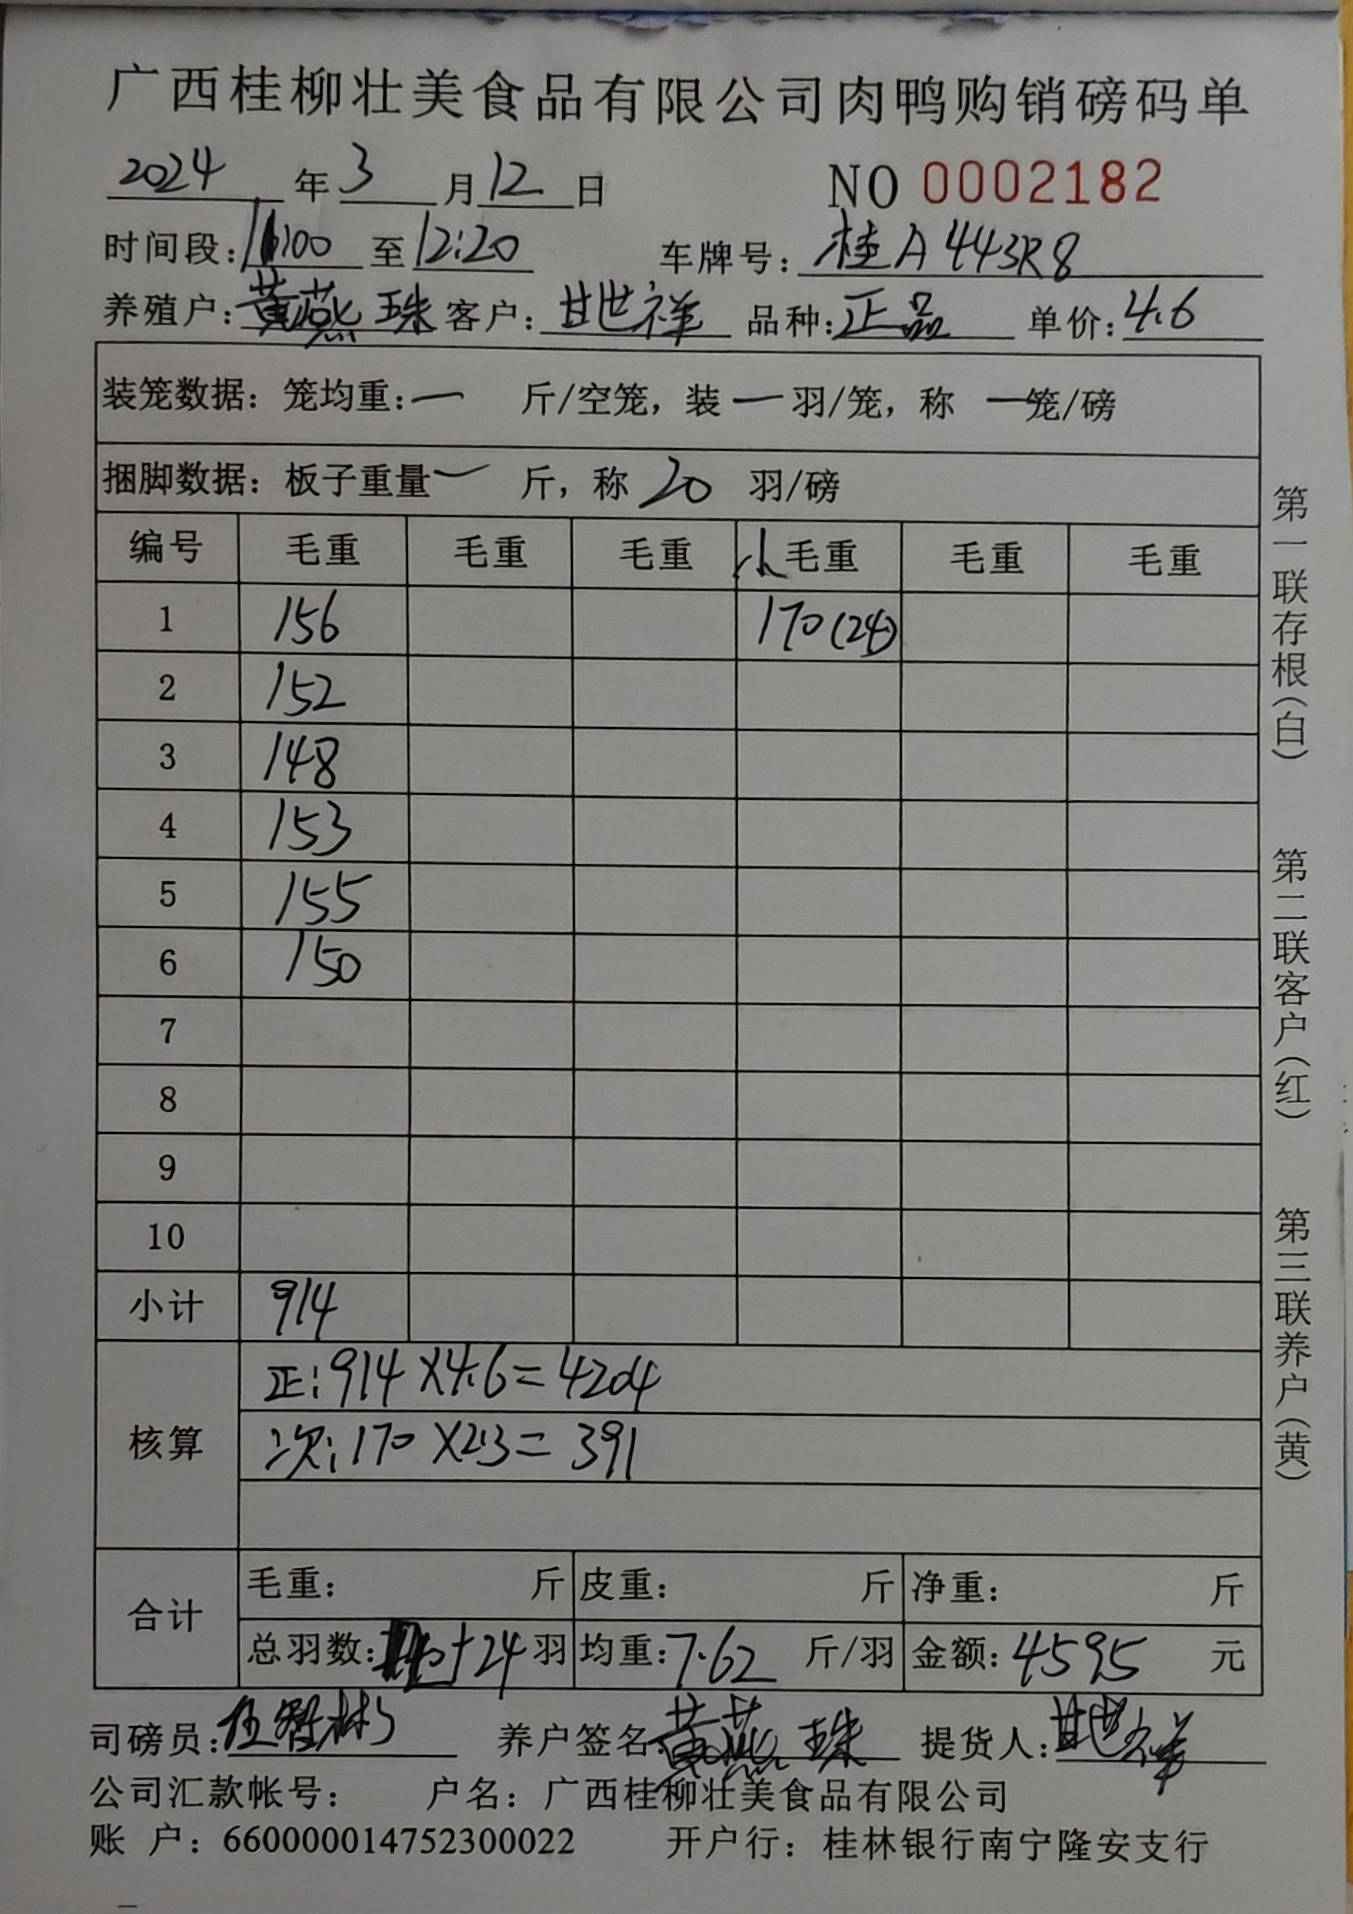 广西桂柳壮美食品有限公司肉鸭购销磅码单
2024 年 3 月 12 日 NO 0002182
时间段: 11:00 至 12:20 车牌号: 桂A443R8
养殖户: 黄燕珠 客户: 甘地祥 品种: 正品 单价: 4.6
装笼数据: 笼均重: 一 斤/空笼, 装 一 羽/笼, 称 一 笼/磅
捆脚数据: 板子重量 一 斤, 称 20 羽/磅
编号 毛重 毛重 毛重 小 毛重 毛重 毛重
1 156 170(24)
2 152
3 148
4 153
5 155
6 150
7
8
9
10
小计 914
核算
正: 914×4.6=4204
次: 170×2.3=391
合计
毛重: 斤 皮重: 斤 净重: 斤
总羽数: +24 羽 均重: 7.62 斤/羽 金额: 4595 元
司磅员: 养户签名: 黄燕珠 提货人: 甘地祥
公司汇款帐号: 户名: 广西桂柳壮美食品有限公司
账 户: 660000014752300022 开户行: 桂林银行南宁隆安支行
第一联存根(白)
第二联客户(红)
第三联养户(黄)